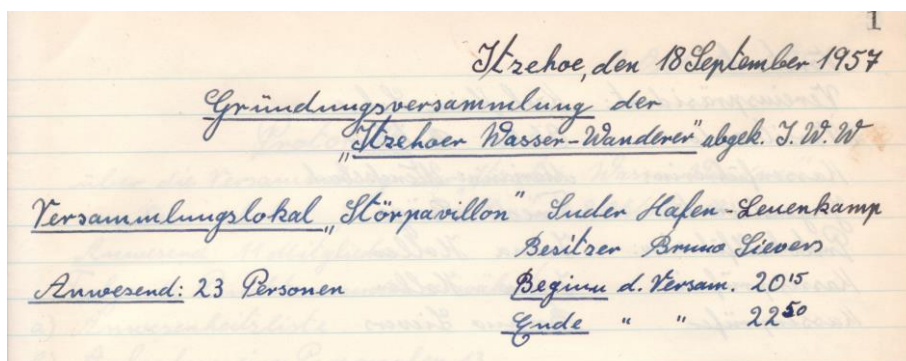 1
Itzehoe, den 18 September 1957
Gründungsversammlung der
„Itzehoer Wasser-Wanderer" abgek. I. W. W
Versammlungslokal „Störpavillon" Suder Hafen-Leuenkamp
Besitzer Bruno Sievers
Anwesend: 23 Personen Beginn d. Versam. 20¹⁵
Ende " " 22⁵⁰